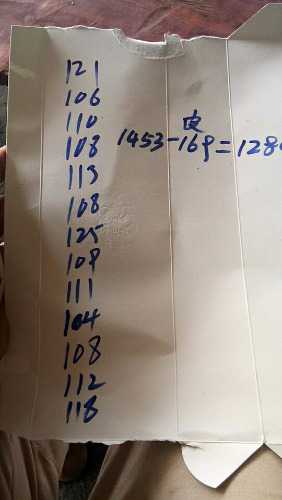 121
106
110
108
113
108
125
109
111
104
108
112
118
皮
1453-169=128